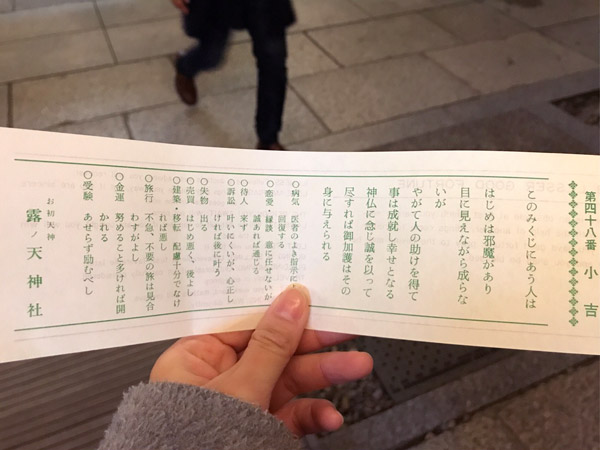 第四十八番 小吉
このみくじにあう人は
はじめは邪魔があり
目に見えながら成らな
いが
やがて人の助けを得て
事は成就し幸せとなる
神仏に念じ誠を以って
尽すれば御加護はその
身に与えられる
○病気 医者のよき指示で
回復する
○恋愛・縁談 意に任せないが
誠あれば通じる
○待人 来ず
○訴訟 叶いにくいが、心正し
ければ後に叶う
○失物 出る
○売買 はじめ悪く、後よし
○建築・移転 配慮十分でなけ
れば悪し
○旅行 不急、不要の旅は見合
わすがよし
○金運 努めること多ければ開
かれる
○受験 あせらず励むべし
お初天神
露ノ天神社